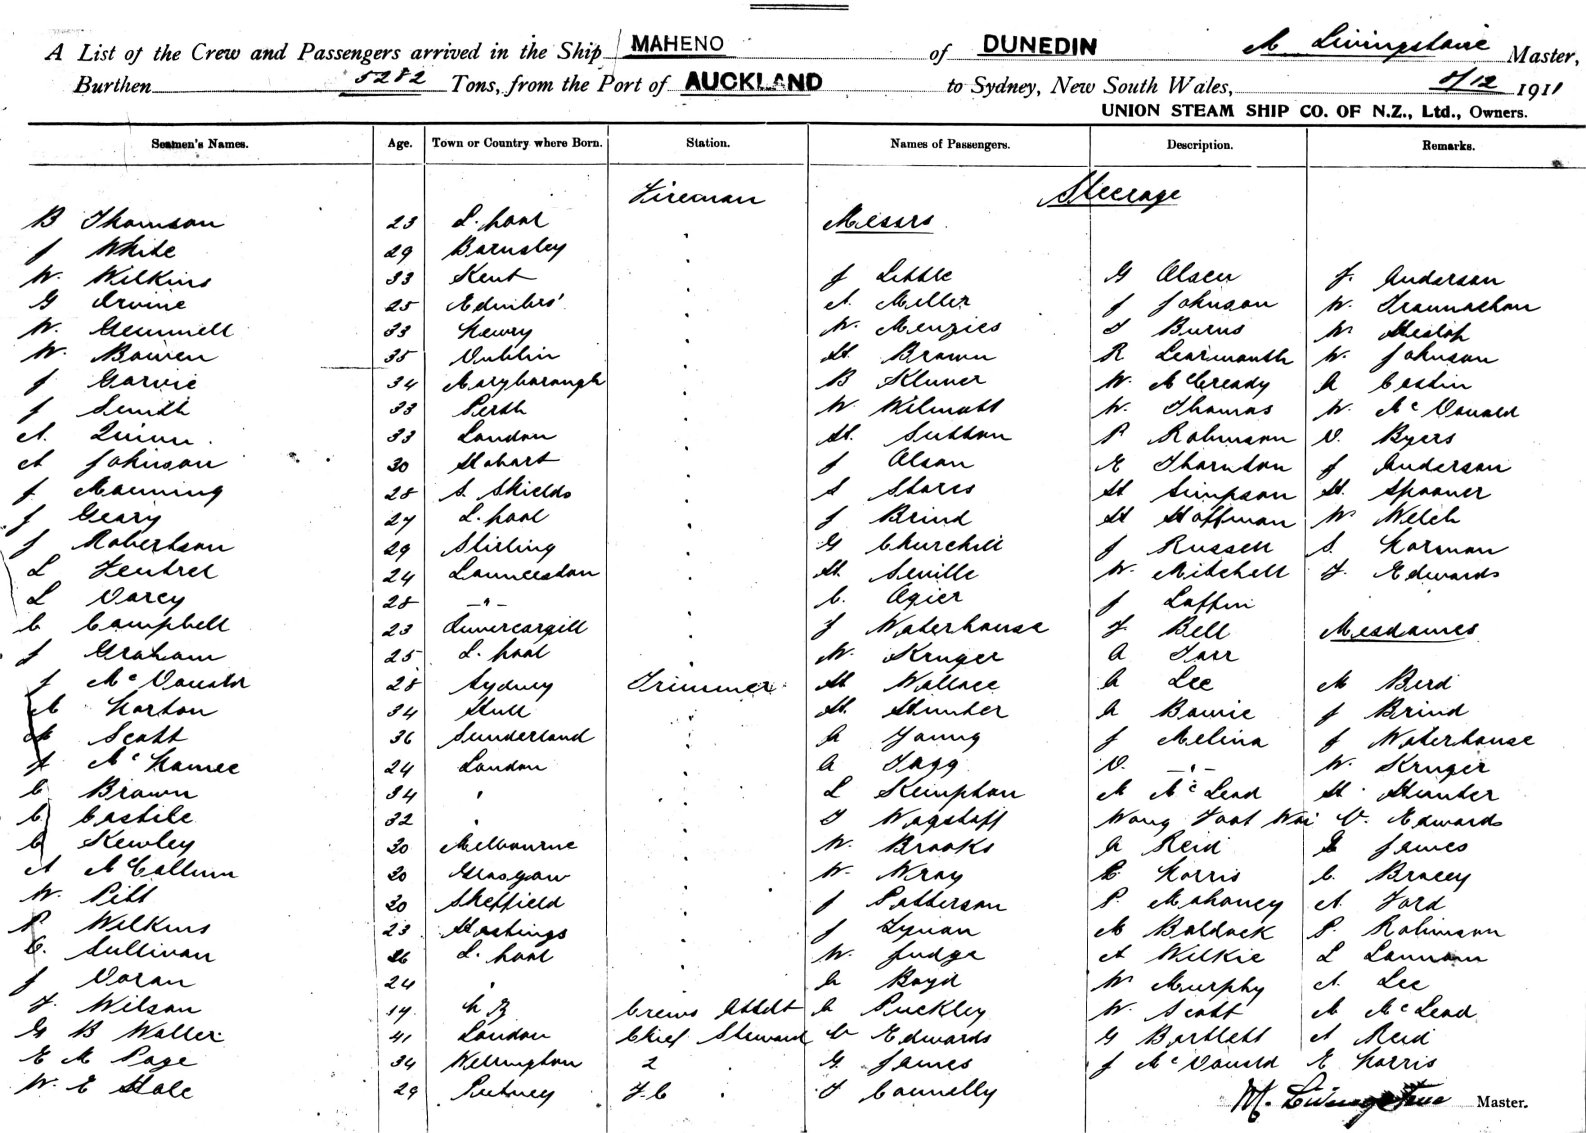 A List of the Crew and Passengers arrived in the Ship MAHENO of DUNEDIN M Livingstone Master,
Burthen 5282 Tons, from the Port of AUCKLAND to Sydney, New South Wales, 5/12 1911
UNION STEAM SHIP CO. OF N.Z., Ltd., Owners.
Seamen's Names. Age. Town or Country where Born. Station. Names of Passengers. Description. Remarks.
Fireman Steerage
B Thomson 23 L.pool Messrs
J White 29 Barnsley
W. Wilkins 33 Kent J Little G Olsen J. Anderson
G Irvine 25 Edinbro' A. Miller J Johnson W.
W. Gemmell 33 Newry W. Menzies T Burns W Heslop
W. Bowen 35 Dublin H. Brown R Learmonth W. Johnson
J Garvie 34 Maryborough B W. McCready A Costin
J Smith 33 Perth W Wilmott W. Thomas W. McDonald
A. Quinn 33 London H. Sutton P Robinson D. Byers
A Johnson 30 Hobart J Olson E Thornton J Anderson
J Manning 28 S. Shields S Stores H Simpson H. Spooner
J Geary 27 L.pool J Brind H Hoffman W Welch
J Robertson 29 Stirling G Churchill J Russell S. Norman
L 24 Launceston H. Seville W. Mitchell T. Edwards
L Darcy 28 -"- C. Ogier J Laffin
C Campbell 23 Invercargill J Waterhouse T Bell Mesdames
J Graham 25 L.pool W. Kruger A Tarr
J McDonald 28 Sydney Trimmer H Wallace A Lee M Bird
Norton 34 Hull H. Hunter A Bowie J Brind
Scott 36 Sunderland A Young J Melina J Waterhouse
McNamee 24 London A Tagg D. -"- W. Kruger
C Brown 34 " L Kempton M McLeod H. Hunter
C Castile 32 " T Wagstaff Wong Foot Wai V. Edwards
C Kewley 30 Melbourne W. Brooks A Reid E James
A McCallum 30 Glasgow W. Wray C Norris C. Bracey
W. Pitt 30 Sheffield J Patterson P Mahoney A. Ford
P. Wilkins 23 Hastings J Tynan M Baldock P. Robinson
C. Sullivan 26 L.pool W. Judge A Wilkie L Lannam
J Doran 24 " A Boyd W Murphy A. Lee
F. Wilson 19. N Z Crews Asstt A Puckley W. Scott M McLeod
G B Waller 41 London Chief Steward V Edwards G Bartlett A Reid
E M Page 34 Wellington 2 G. James J McDonald E Norris
W. E Hale 29 Putney F.C T Connelly
M. Livingstone Master.